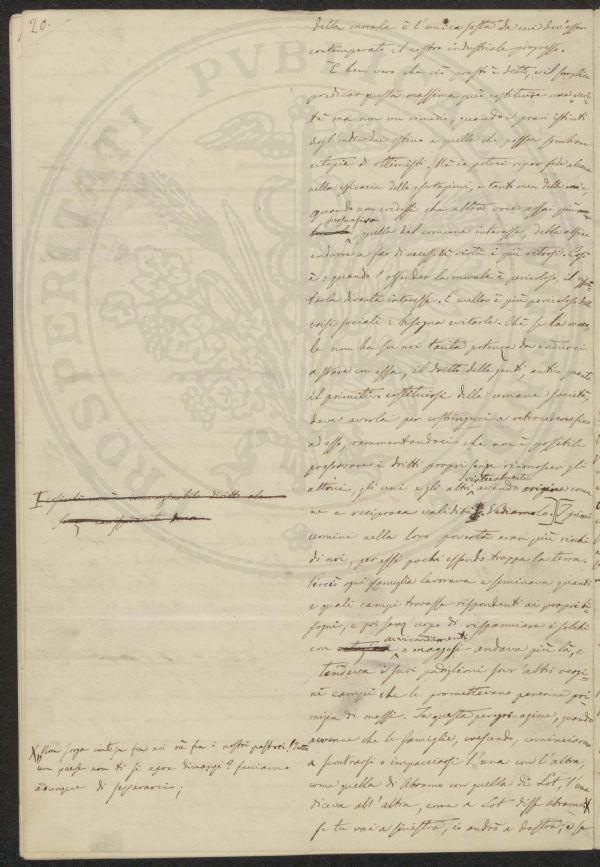 20.
della morale è l'unica sosta da cui dev'esser
contemperato il nostro industriale progresso.
È ben vero che ciò presto è detto, e il semplice
predicar questa massima può costituire una veri-
tà ma non un rimedio, quando i pravi istinti
degl'individui ostino a quelle che posson sembrare
utopie di ottimisti. Nè io potrei ripor fede alcuna
nella efficacia delle esortazioni, e tanto men delle mie
quando non credessi che altra voce assai più
persuasiva
quella del comune interesse, debba alfine
indurre a far di necessità virtù i più ritrosi. Così
è: quando l'offender la morale è pericoloso, il rispet-
tarla diventa interesse. E nulla è più pericoloso delle
crisi sociali: bisogna evitarle. Chè se la mora-
le non ha su noi tanta potenza da indurci
a stare con essa, il dritto delle genti, antico quanto
il primitivo costituirsi delle umane società,
deve averla per costringerci a retrocedere fino
ad esso, rammentandoci che non è possibile
preservare i dritti propri senza riconoscer gli
altrui, gli uni e gli altri avendo virtualmente origine comu-
ne e reciproca validità. Vediamolo. I primi
uomini nella loro povertà eran più ricchi
di noi, per essi pochi essendo troppa la terra.
Perciò ogni famiglia lavorava e seminava quanti
e quali campi trovasse rispondenti ai propri bi-
sogni, e poi senz'uopo di risparmiare i solchi
con avvicendamenti o maggesi andava più là, e
tendeva i suoi padiglioni sovr'altri vergi-
ni campi che le promettevano perenne pri-
mizia di messi. In questa peregrinazione, quando
avvenne che le famiglie, crescendo, cominciarono
a scontrarsi o impacciarsi l'una con l'altra,
come quella di Abramo con quella di Lot, l'una
diceva all'altra, come a Lot disse Abramo X
se tu vai a sinistra, io andrò a destra, e se
X Non sorga contesa fra noi nè fra i nostri pastori. Tutto
un paese non ti si apre dinanzi? facciamo
adunque di separarci;
ROSPERITATI PUBLICAE